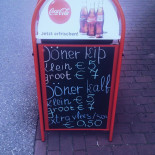 Coca-Cola
Döner kip
klein € 5
groot € 7
Döner kalf
klein € 5
groot € 7
Extra vlees/
€ 0,50